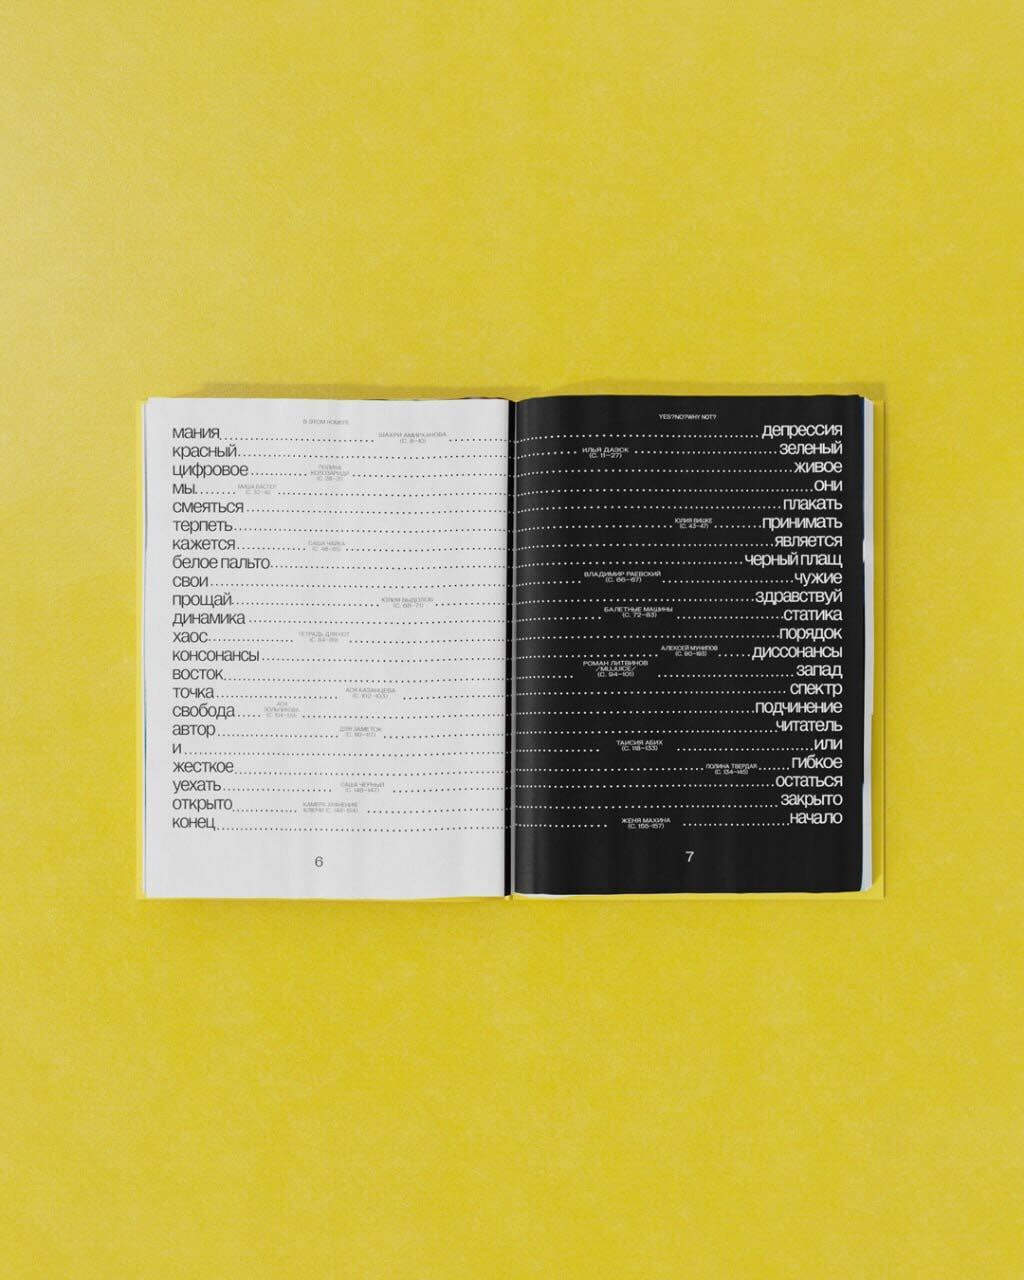 В ЭТОМ НОМЕРЕ
YES?NO?WHY NOT?
мания
ШАХРИ АМИРХАНОВА
(С. 8—10)
депрессия
красный
ИЛЬЯ ДАЗЮК
(С. 11—27)
зеленый
цифровое
ПОЛИНА
живое
мы
они
смеяться
плакать
терпеть
ЮЛИЯ ВИЦКЕ
(С. 43—47)
принимать
кажется
САША ЧАЙКА
является
белое пальто
черный плащ
свои
ВЛАДИМИР РАЕВСКИЙ
(С. 66—67)
чужие
прощай
ЮЛИЯ ВЫДОЛОБ
(С. 68—71)
здравствуй
динамика
БАЛЕТНЫЕ МАШИНЫ
(С. 72—83)
статика
хаос
ТЕТРАДЬ ДЛЯ НОТ
порядок
консонансы
АЛЕКСЕЙ МУНИПОВ
диссонансы
восток
РОМАН ЛИТВИНОВ
/MUJUICE/
(С. 94—101)
запад
точка
АСЯ КАЗАНЦЕВА
(С. 102—103)
спектр
свобода
АСЯ
подчинение
автор
ДЛЯ ЗАМЕТОК
читатель
и
ТАИСИЯ АБИХ
(С. 118—133)
или
жесткое
ПОЛИНА ТВЕРДАЯ
(С. 134—145)
гибкое
уехать
САША ЧЕРНЫЙ
(С. 146—147)
остаться
открыто
КАМЕРА ХРАНЕНИЯ
закрыто
конец
ЖЕНЯ МАХИНА
(С. 155—157)
начало
6
7